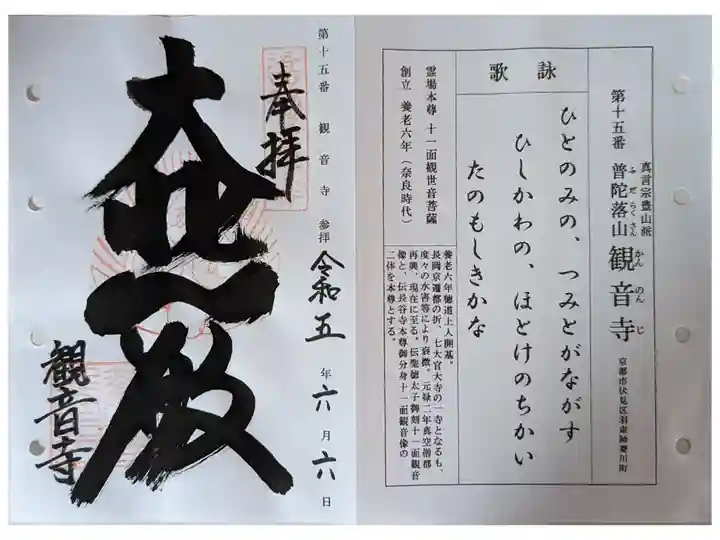 真言宗豊山派
第十五番 普陀落山 観音寺
ふだらくさん かんのんじ
京都市伏見区羽束師菱川町
詠歌
ひとのみの、つみとがながす
ひしかわの、ほとけのちかい
たのもしきかな
霊場本尊 十一面観世音菩薩
創立 養老六年(奈良時代)
養老六年徳道上人開基。
長岡京遷都の折、七大官大寺の一寺となるも、
度々の水害等により衰微。元禄二年真空僧都
再興、現在に至る。伝聖徳太子御刻十一面観音
像と、伝長谷寺本尊御分身十一面観音像の
二体を本尊とする。
第十五番 観音寺 参拝 令和五年六月六日
奉拝
大悲殿
観音寺